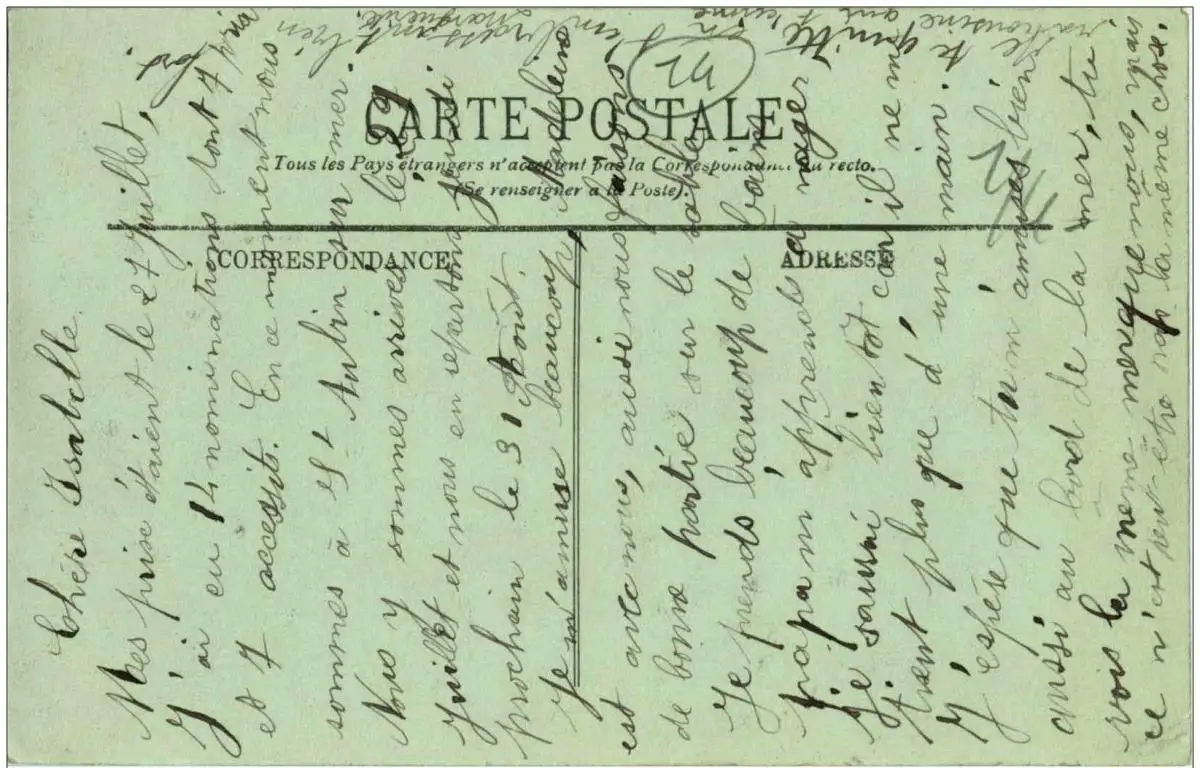 52
CARTE POSTALE
Tous les Pays étrangers n'acceptent pas la Correspondance au recto.
(Se renseigner à la Poste).
CORRESPONDANCE
ADRESSE
Chère Isabelle
Mes prix étaient le 27 Juillet,
J'ai eu 14 nominations dont 7 prix
et 7 accessits. En ce moment nous
sommes à St Aubin sur mer.
Nous y sommes arrivés le 29
Juillet et nous en repartons jeudi
prochain le 31 Août.
Je m'amuse beaucoup Madeleine
est avec nous, aussi nous faisons
de bonne partie sur le sable.
Je prends beaucoup de bains
papa m'apprends à nager
je saurai bientôt car il ne me
tient plus que d'une main.
J'espère que tu m'amuses bien
aussi au bord de la mer, tu
vois la même mer que nous, mais
ce n'est peut-être pas la même chose.
Je te quitte en t'embrassant bien
fort
qui t'aime
Marguerite.